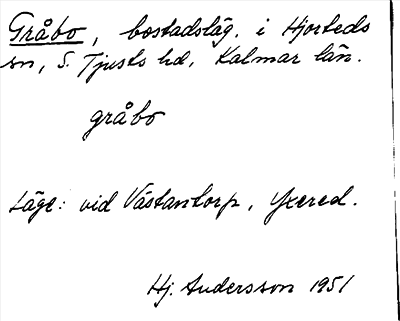 Gråbo, bostadsläg. i Hjorteds
sn, S. Tjusts hd, Kalmar län.
gråbo
Läge: vid Västantorp, Yxered.
Hj. Andersson 1951